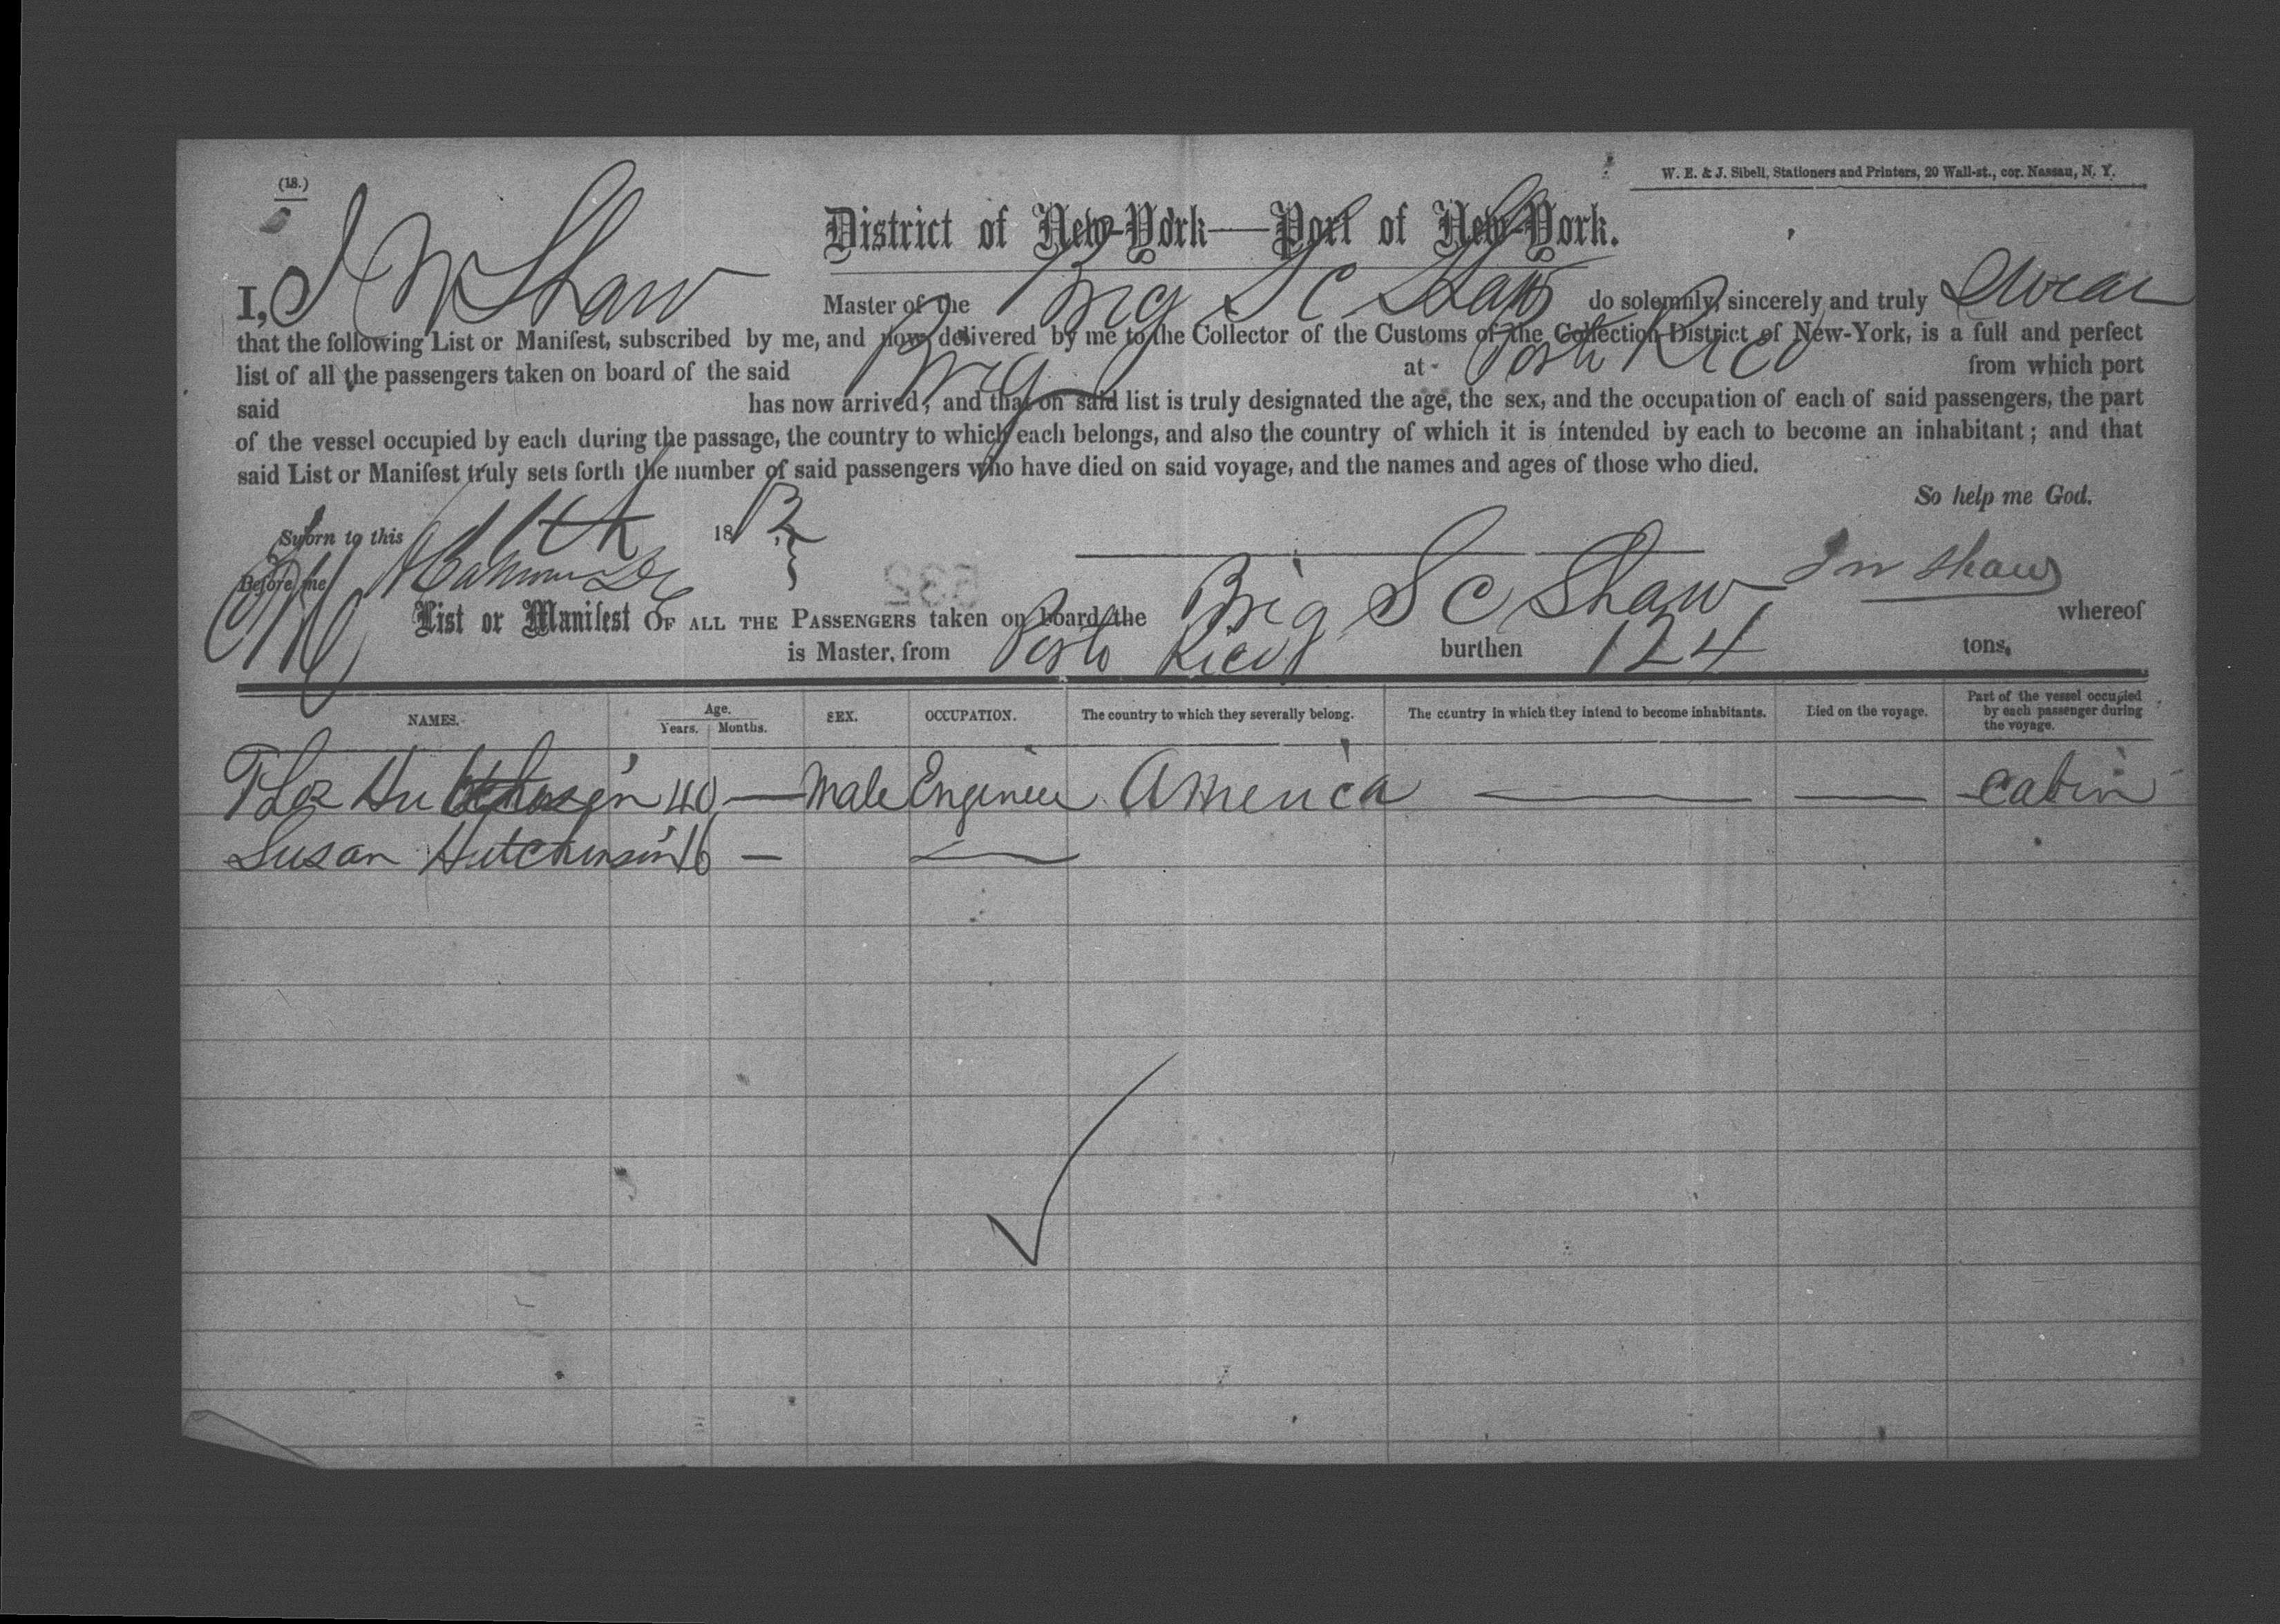 (18.)
W. E. & J. Sibell, Stationers and Printers, 20 Wall-st., cor. Nassau, N. Y.
District of New-York—Port of New-York.
I, J W Shaw Master of the Brig S C Shaw do solemnly, sincerely and truly Swear
that the following List or Manifest, subscribed by me, and now delivered by me to the Collector of the Customs of the Collection District of New-York, is a full and perfect
list of all the passengers taken on board of the said Brig at Porto Rico from which port
said has now arrived; and that on said list is truly designated the age, the sex, and the occupation of each of said passengers, the part
of the vessel occupied by each during the passage, the country to which each belongs, and also the country of which it is intended by each to become an inhabitant; and that
said List or Manifest truly sets forth the number of said passengers who have died on said voyage, and the names and ages of those who died.
So help me God.
Sworn to this 18
Before me J W Shaw
532
List or Manifest OF ALL THE PASSENGERS taken on board the Brig S C Shaw whereof
is Master, from Porto Rico burthen 124 tons.
NAMES. Age. Years. Months. SEX. OCCUPATION. The country to which they severally belong. The country in which they intend to become inhabitants. Died on the voyage. Part of the vessel occupied by each passenger during the voyage.
Thos Hutchosin 40 — Male Engineer America — — Cabin
Susan Hutchinson 16 — —